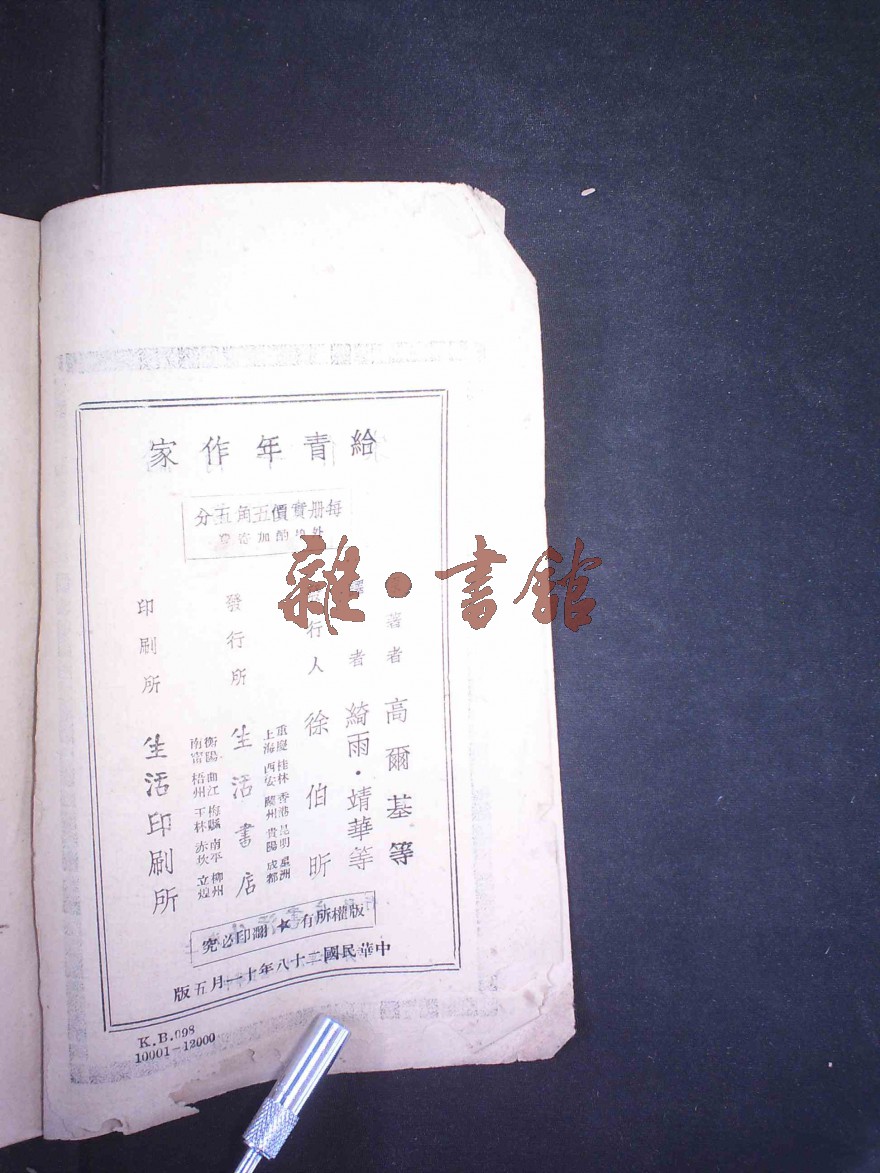 給青年作家
每册實價五角五分
外埠酌加寄費
著者 高爾基等
譯者 綺雨·靖華等
發行人 徐伯昕
發行所 生活書店
重慶 桂林 香港 昆明 星洲
上海 西安 蘭州 貴陽 成都
衡陽 曲江 梅縣 南平 柳州
南甯 梧州 玉林 赤坎 立煌
印刷所 生活印刷所
版權所有★翻印必究
中華民國二十八年十一月五版
K.B.098
10001-12000
雜·書館